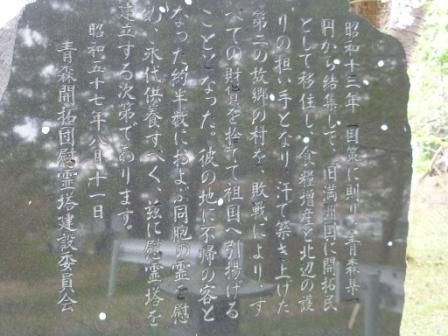 昭和十三年 国策に則り 青森県一
円から結集して、旧満州国に開拓民
として移住し、食糧増産と北辺の護
りの担い手となり、汗で築き上げた
第二の故郷の村を、敗戦により、す
べての財貨を捨てて祖国へ引揚げる
こととなった。彼の地に不帰の客と
なった約半数におよぶ同胞の霊を慰
め、永代供養すべく、玆に慰霊塔を
建立する次第であります。
昭和五十七年八月十一日
青森開拓団慰霊塔建設委員会